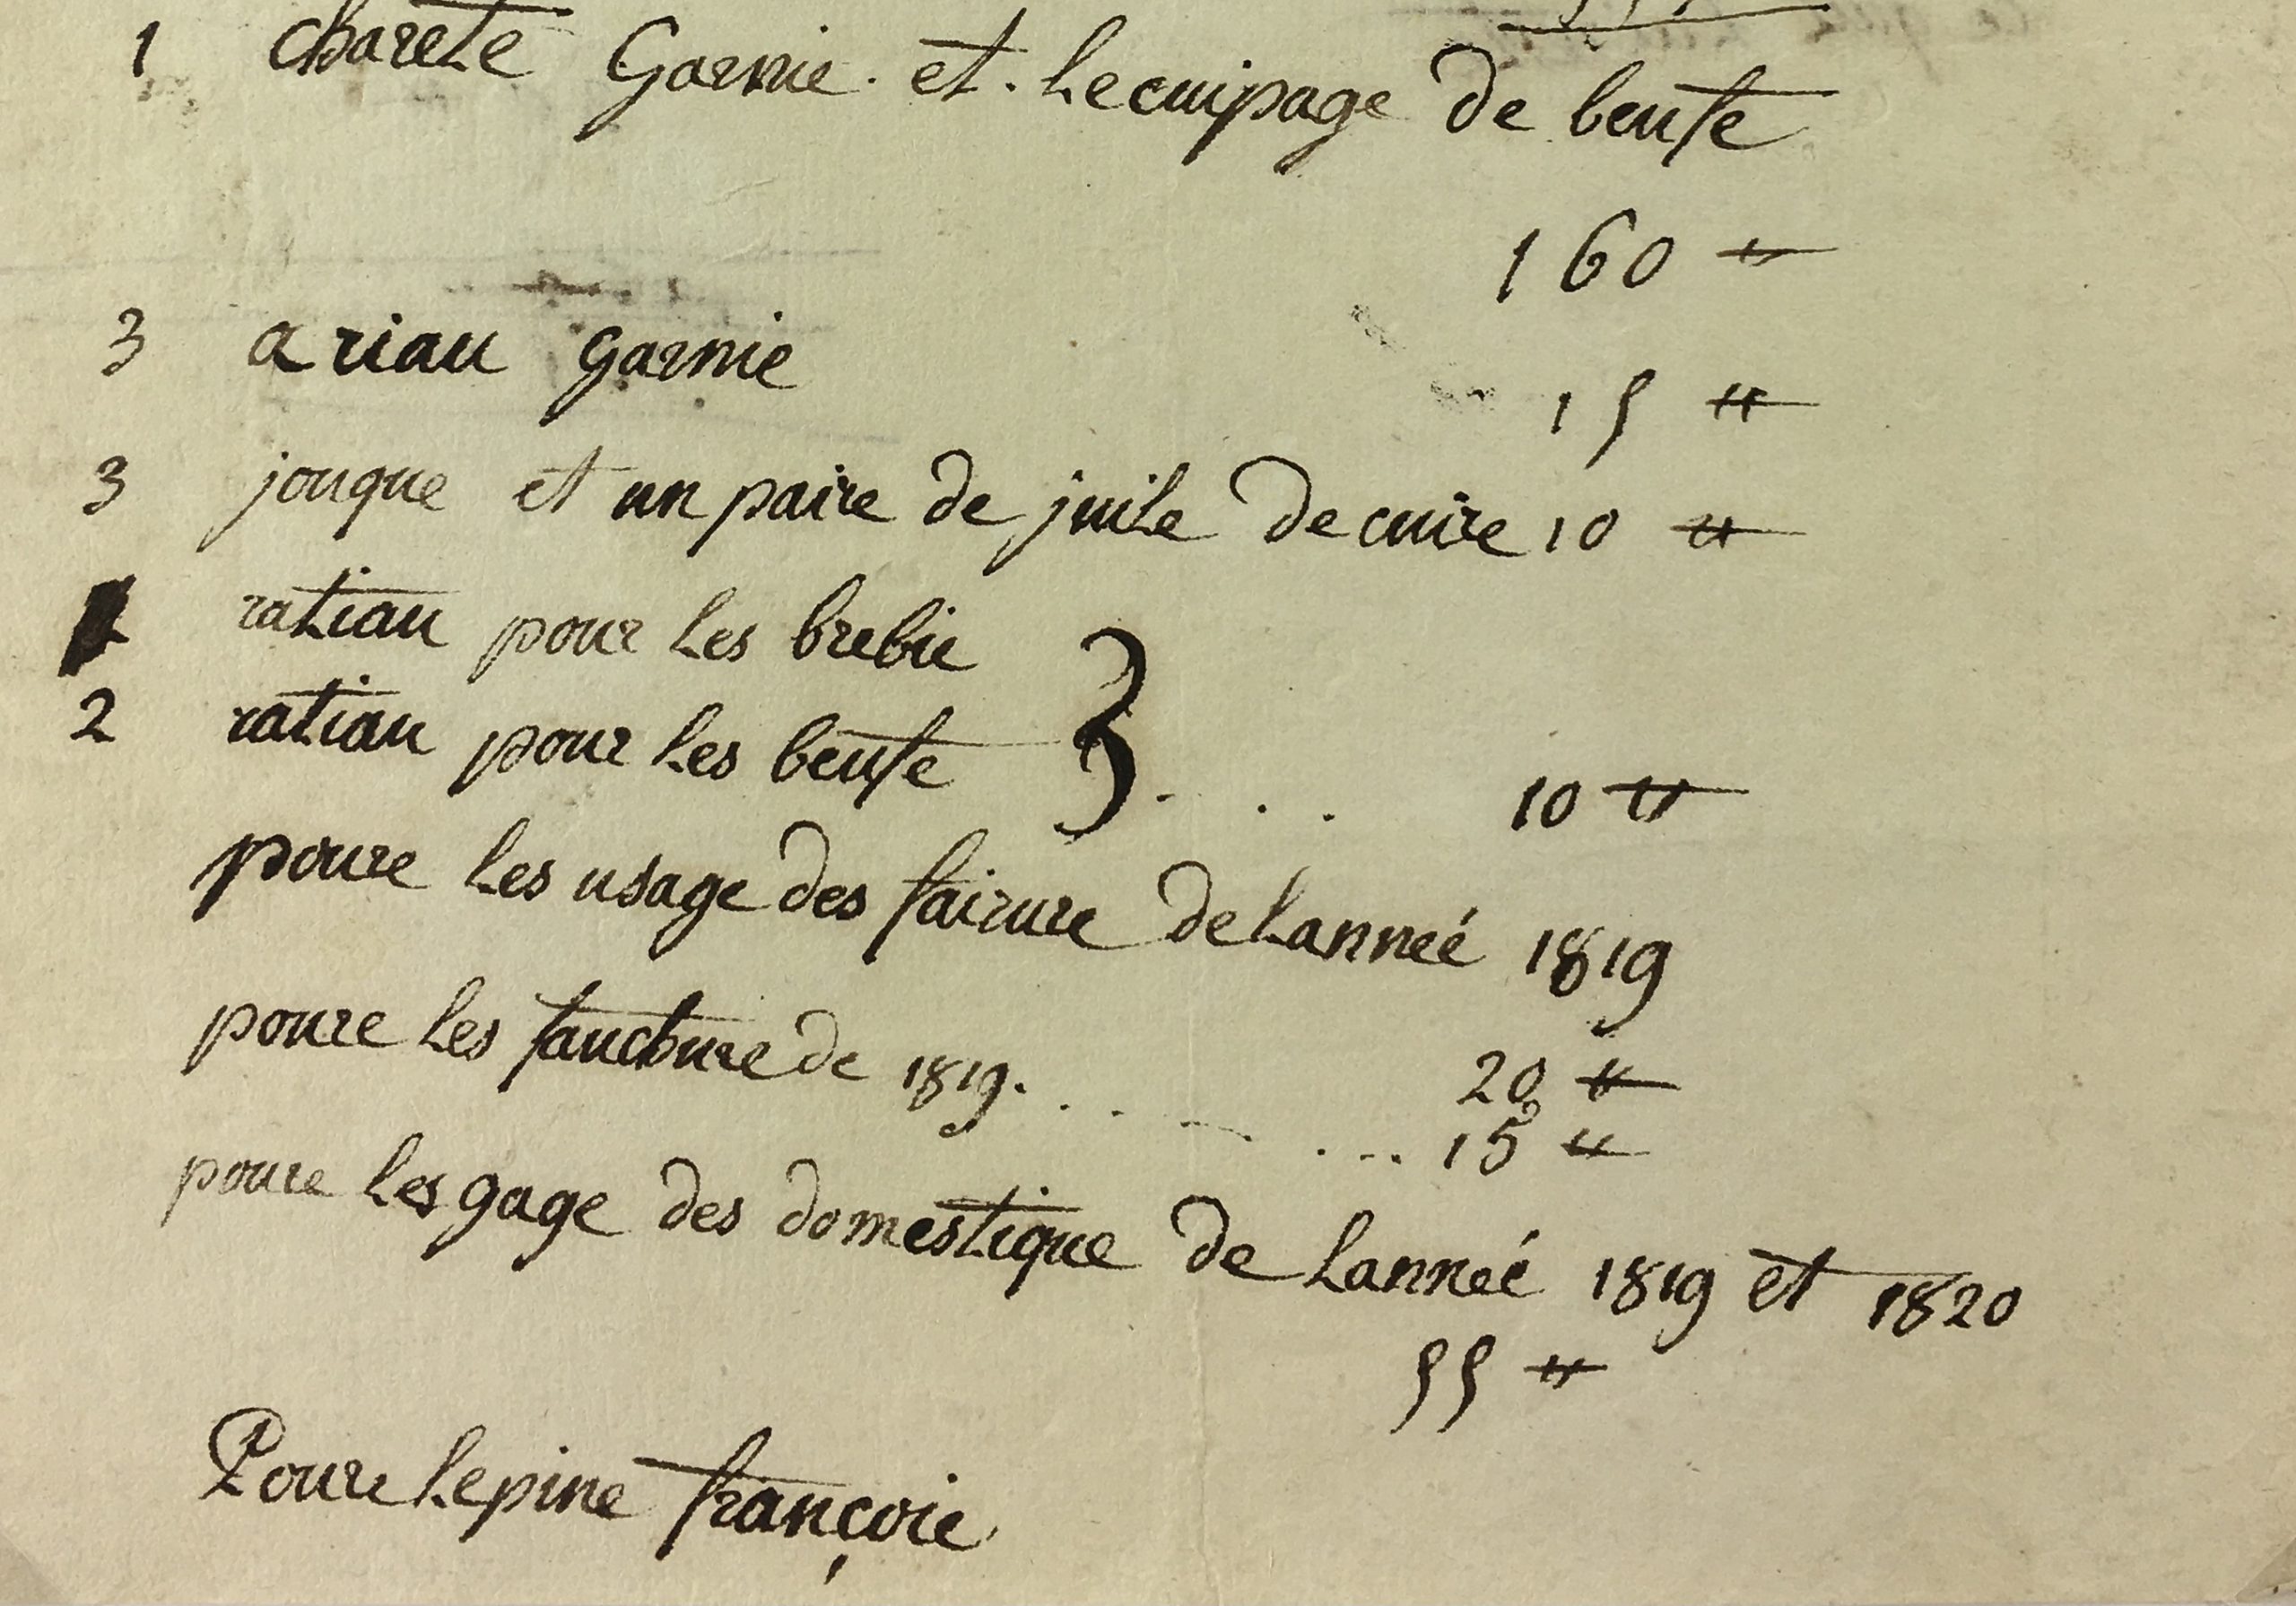 1 charete Garnie et lecuipage de beufe
160 "
3 ariau garnie
15 "
3 jouque et un paire de juile de cuire 10 "
ratiau pour les brebie
2 ratiau pour les beufe
. . . 10 "
poure les usage des fairure delanneé 1819
20 "
poure les fauchure de 1819 . . . . . . 15 "
poure les gage des domestique de lanneé 1819 et 1820
55 "
Poure lepine françoie